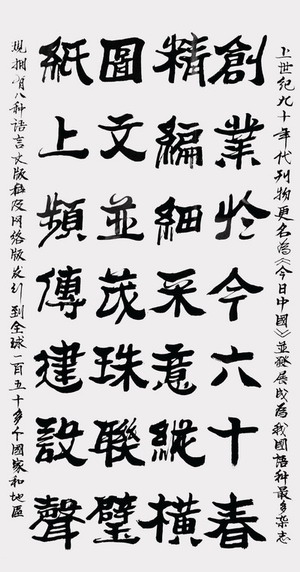 上世纪九十年代刊物更名為《今日中國》並發展成為我國語种最多杂志
創業於今六十春
精編細采意縱橫
圖文並茂珠聯璧
紙上頻傳建設聲
現拥有八种語言文版及网络版发行到全球一百五十多个國家和地區